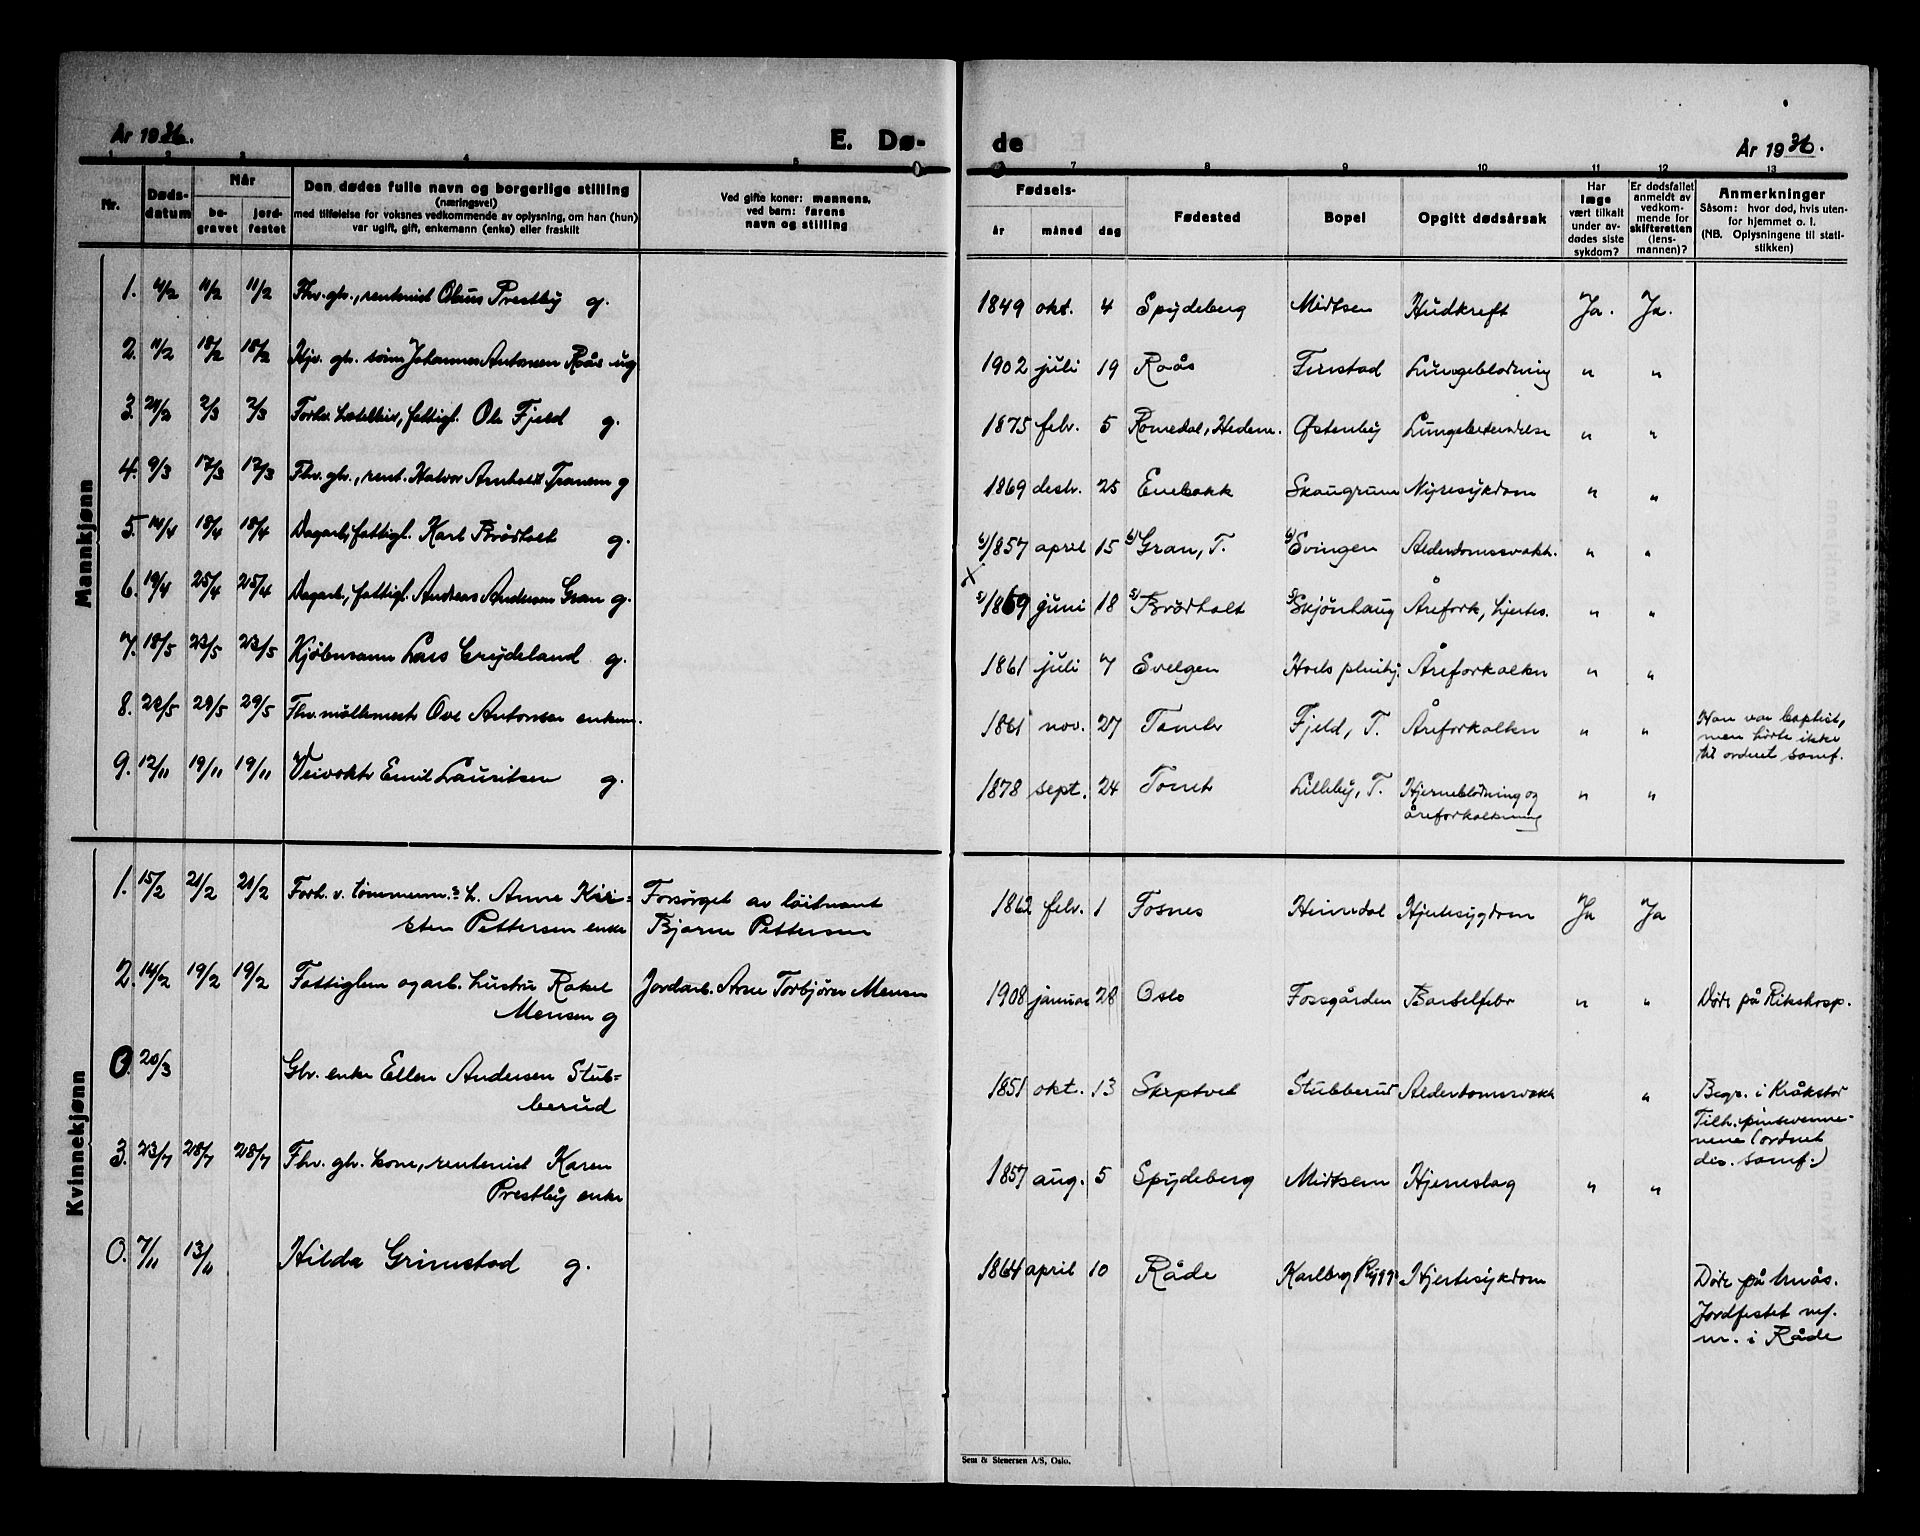 År 1936.
E. Dø-
de
År 1936.
1 2 3 4 5
6 7 8 9 10 11 12 13
Nr.
Døds-
datum
Når
be-
gravet
jord-
festet
Den dødes fulle navn og borgerlige stilling
(næringsvei)
med tilføielse for voksnes vedkommende av oplysning, om han (hun)
var ugift, gift, enkemann (enke) eller fraskilt
Ved gifte koner: mannens,
ved barn: farens
navn og stilling
Fødsels-
år måned dag
Fødested
Bopel
Opgitt dødsårsak
Har
læge
vært tilkalt
under av-
dødes siste
sykdom?
Er dødsfallet
anmeldt av
vedkom-
mende for
skifteretten
(lens-
mannen)?
Anmerkninger
Såsom: hvor død, hvis uten-
for hjemmet o. l.
(NB. Oplysningene til stati-
stikken)
Mannkjønn
1. 4/2 11/2 11/2 Fhv. gbr., rentenist Olaus Prestby g. 1849 okt. 4 Spydeberg Midtsem Hudkreft Ja. Ja.
2. 11/2 18/2 18/2 Hjv. gbr. sønn Johannes Antonsen Raås ug 1902 juli 19 Raås Finstad Lungeblødning " "
3. 24/2 2/3 2/3 Forhv. hotelleier, fattigl. Ole Fjeld g. 1875 febr. 5 Romedal, Hedem. Østenby Lungebetendelse " "
4. 9/3 17/3 17/3 Fhv. gbr., rent. Halvor Arnholdt Tranem g 1869 desbr. 25 Enebakk Skaugrum Nyresykdom " "
5. 14/4 18/4 18/4 Dagarb., fattigl. Karl Brødholt g. 6/1857 april 15 6/ Gran, T. 6/ Svingen Alderdomssvakh. " "
6. 19/4 25/4 25/4 Dagarb., fattigl. Andreas Andersen Gran g. X 5/1869 juni 18 5/ Brødholt 5/ Skjønhaug Årefork., hjertes. " "
7. 18/5 23/5 23/5 Kjøbmann Lars Grydeland g. 1861 juli 7 Svelgen Hvels pleiehj. Åreforkalkn " "
8. 22/5 29/5 29/5 Fhv. møllemestr Ove Antonsen enkem. 1861 nov. 27 Tomter Fjeld, T. Åreforkalkn " " Han var baptist,
men hørte ikke
til ordnet samf.
9. 12/11 19/11 19/11 Veivokter Emil Lauritsen g. 1878 sept. 24 Tomter Lilleby, T. Hjerneblødning og " "
åreforkalkning
Kvinnekjønn
1. 15/2 21/2 21/2 Forh. v. tømmerm.s h. Anne Kir- Forsørget av løitnant 1862 febr. 1 Fosnes Heimdal Hjertesygdom Ja Ja
sten Pettersen enke Bjarne Pettersen
2. 14/2 19/2 19/2 Fattiglem og arb. hustru Rakel Jordarb. Arne Torbjørn Mensen 1908 januar 28 Oslo Fossgården Barselfebr " " Døde på Rikshosp.
Mensen g
0. 20/3 Gbr. enke Ellen Andersen Stub- 1851 okt. 13 Skiptvet Stubberud Alderdomssvakh " Begr. i Kråkstad
berud Tilh. pinsevenne-
nene (ordnet
dis. samf.)
3. 23/7 28/7 28/7 Fhv. gbr. kone, rentenist Karen 1857 aug. 5 Spydeberg Midtsem Hjerneslag " "
Prestby enke
0. 7/11 13/11 Hilda Grimstad g. 1864 april 10 Råde Karlberg Rygge Hjertesykdom Døde på Mnås.
Jordfestet
i Råde
Sem & Stenersen A/S, Oslo.